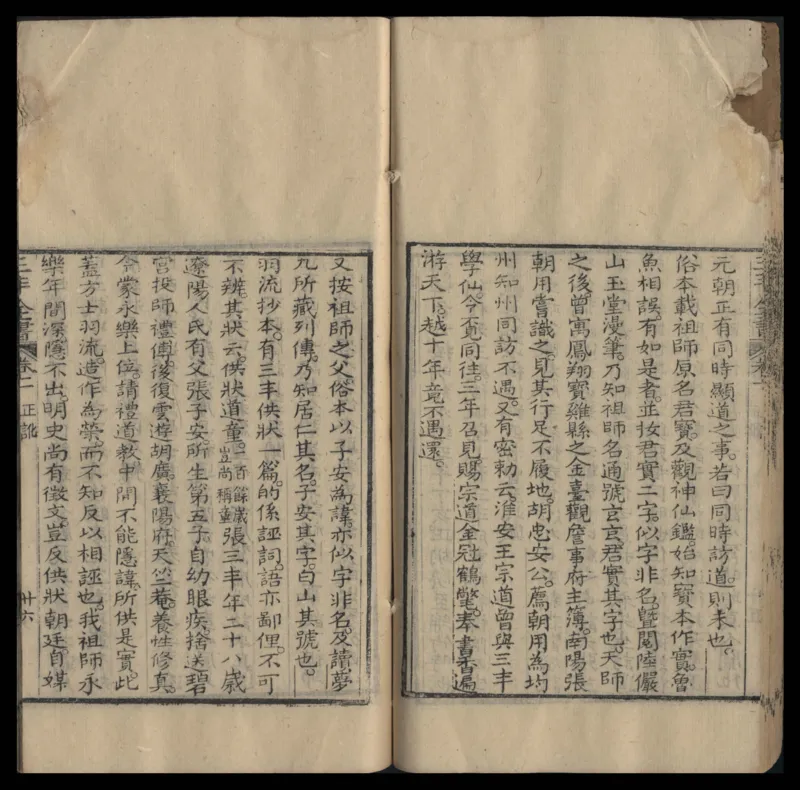 元朝正有同時顯道之事。若曰同時訪道。則未也。
俗本載祖師原名君寶。及觀神仙鑑。始知寶本作實。魯
魚相誤。有如是者。並按君實二字。似字非名。暨閱陸儼
山玉堂漫筆。乃知祖師名通。號玄玄。君實其字也。天師
之後。曾寓鳳翔寶雞縣之金臺觀。詹事府主簿。南陽張
朝用嘗識之。見其行足不履地。胡忠安公。薦朝用為均
州知州。同訪不遇。又有密勅云。淮安王宗道。曾與三丰
學仙。今覓同往。三年召見。賜宗道金冠鶴氅。奉書香。遍
游天下。越十年。竟不遇還。
又按祖師之父。俗本以子安為諱。亦似字非名。及讀夢
九所藏列傳。乃知居仁其名。子安其字。白山其號也。
羽流抄本。有三丰供狀一篇。的係誣詞。語亦鄙俚。不可
不辨。其狀云。供狀道童。二百餘歲豈尚稱童張三丰。年二十八歲
遼陽人氏。有父張子安。所生第五子。自幼眼疾。捨送碧
宮投師禮傅。後復雲遊胡廣。襄陽府。天竺菴。養性修真。
今蒙永樂上位。請禮道教中間。不能隱諱。所供是實。此
蓋方士羽流。造作為榮。而不知反以相誣也。我祖師永
樂年間。深隱不出。明史尚有徵文。豈反供狀朝廷。自媒
三丰全書 卷一 正訛 廿六